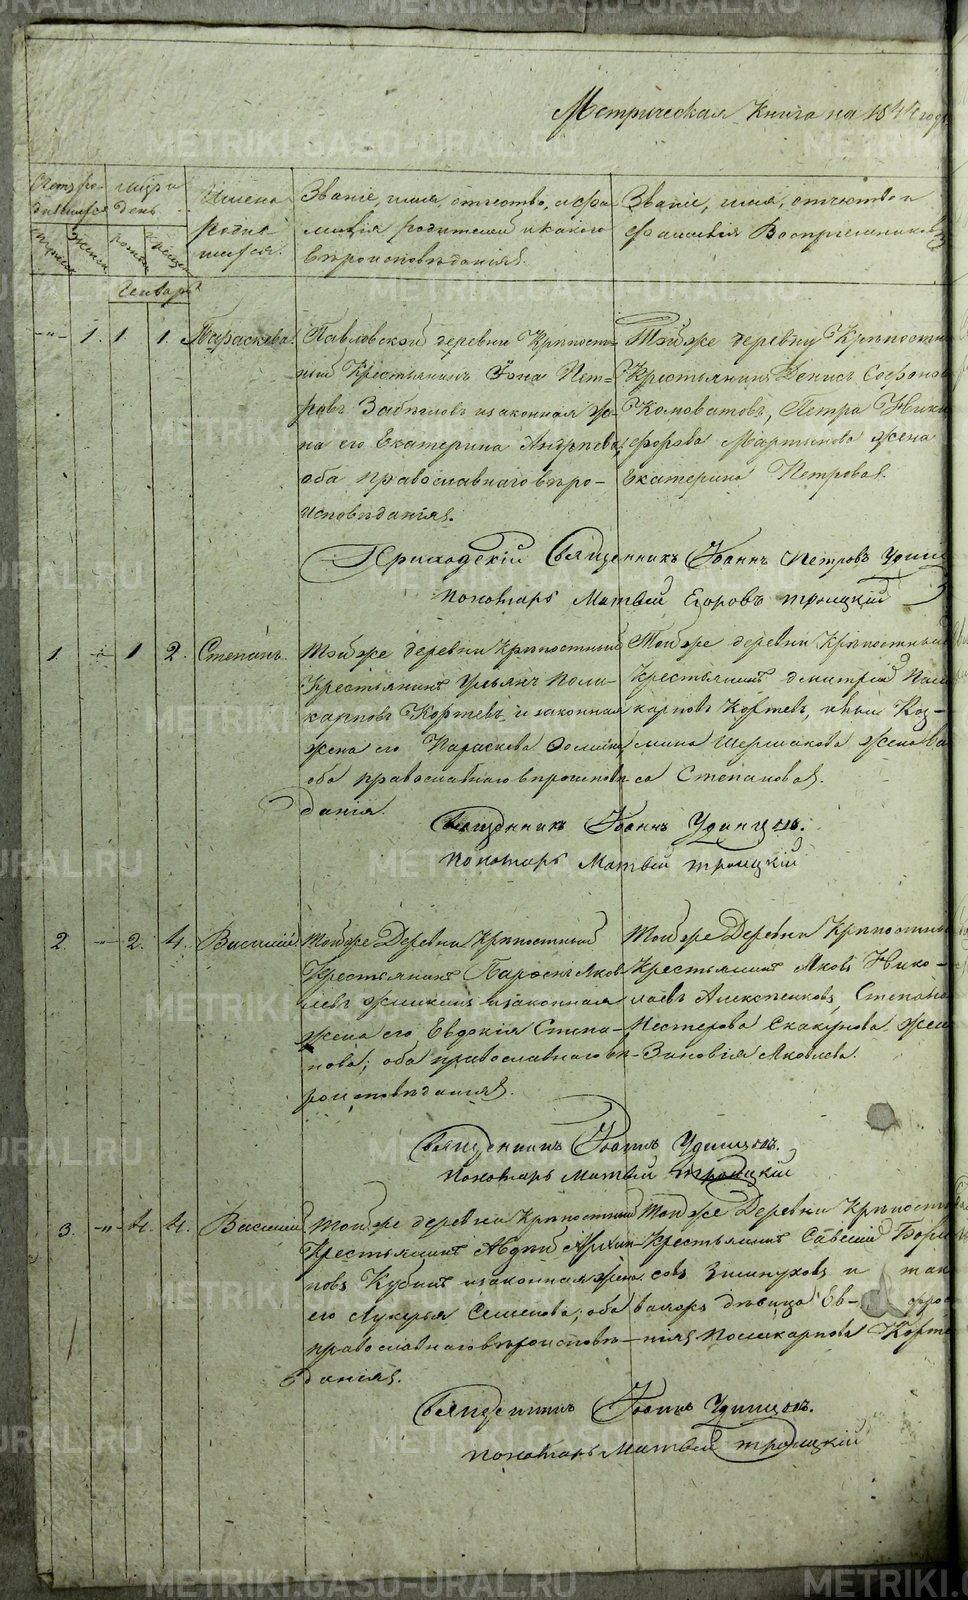 Метрическая Книга на 184 год
Счетъ ро-
дившихся
мѣсяцъ и
день
Имена
родив
шихся.
Званіе, имя, отчество, и фа-
милія родителей и какого
вѣроисповѣданія.
Званіе, имя, отчество и
фамилія Воспріемниковъ
Январь
1. 1 1. Параскева.
Павловской деревни Крѣпост-
ный Крестьянинъ Іона Пет-
ровъ Забѣловъ и законная же-
на его Екатерина Андреева,
оба православнаго вѣро-
исповѣданія.
Той же деревни Крѣпостн
Крестьянинъ Денисъ Софонов
Коноватовъ, Петра Ники
форова Мартынова жена
Екатерина Петрова.
Приходскій Священникъ Іоаннъ Петровъ Удин
Пономарь Матвей Егоровъ Троицкій
1. 1 2. Степанъ.
Той же деревни Крѣпостный
Крестьянинъ Ульянъ Поли-
карповъ Кортевъ, и законная
жена его Параскева
оба православнаго вѣроисповѣ
данія.
Той же деревни Крѣпостный
Крестьянинъ Дмитрій Поли
карповъ Кортевъ, Коз-
мина Шермакова жена Ва
са Степанова.
Священникъ Іоаннъ Удинцовъ.
Пономарь Матвей Троицкій
2. 2. 4. Василій.
Той же Деревни Крѣпостный
Крестьянинъ Яков
левъ и законная
жена его Евдокія Степа-
нова; оба православнаго вѣ-
роисповѣданія.
Той же Деревни Крѣпостны
Крестьянинъ Яковъ Нико-
лаевъ Алексеенковъ, Степана
Нестерова Скакунова жен
Зиновія Яковлева.
Священникъ Іоаннъ Удинцовъ.
Пономарь Матвей Троицкій
3. 4. 4. Василій.
Той же деревни Крѣпостный
Крестьянинъ Авдей Архип-
повъ Кубинъ и законная жена
его Лукерья Семенова; оба
православнаго вѣроисповѣ-
данія.
Той же Деревни Крѣпостн
Крестьянинъ Савелій Бори
совъ Зипуновъ и так
девица Ев- фро
нія Поликарпова Корте
Священникъ Іоаннъ Удинцовъ.
Пономарь Матвей Троицкій
METRIKI.GASO-URAL.RU